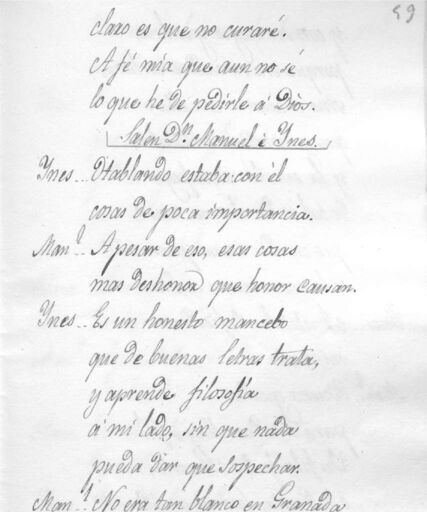 59
claro es que no curaré.
A fé mia que aun no sé
lo que hé de pedirle á Dios.
Salen Dn. Manuel é Ynes.
Ynes.. Hablando estaba con él
cosas de poca importancia.
Manl.. A pesar de eso, esas cosas
mas deshonor que honor causan.
Ynes.. Es un honesto mancebo
que de buenas letras trata,
y aprende filosofía
á mi lado, sin que nada
pueda dar que sospechar.
Manl. No era tan blanco en Granada